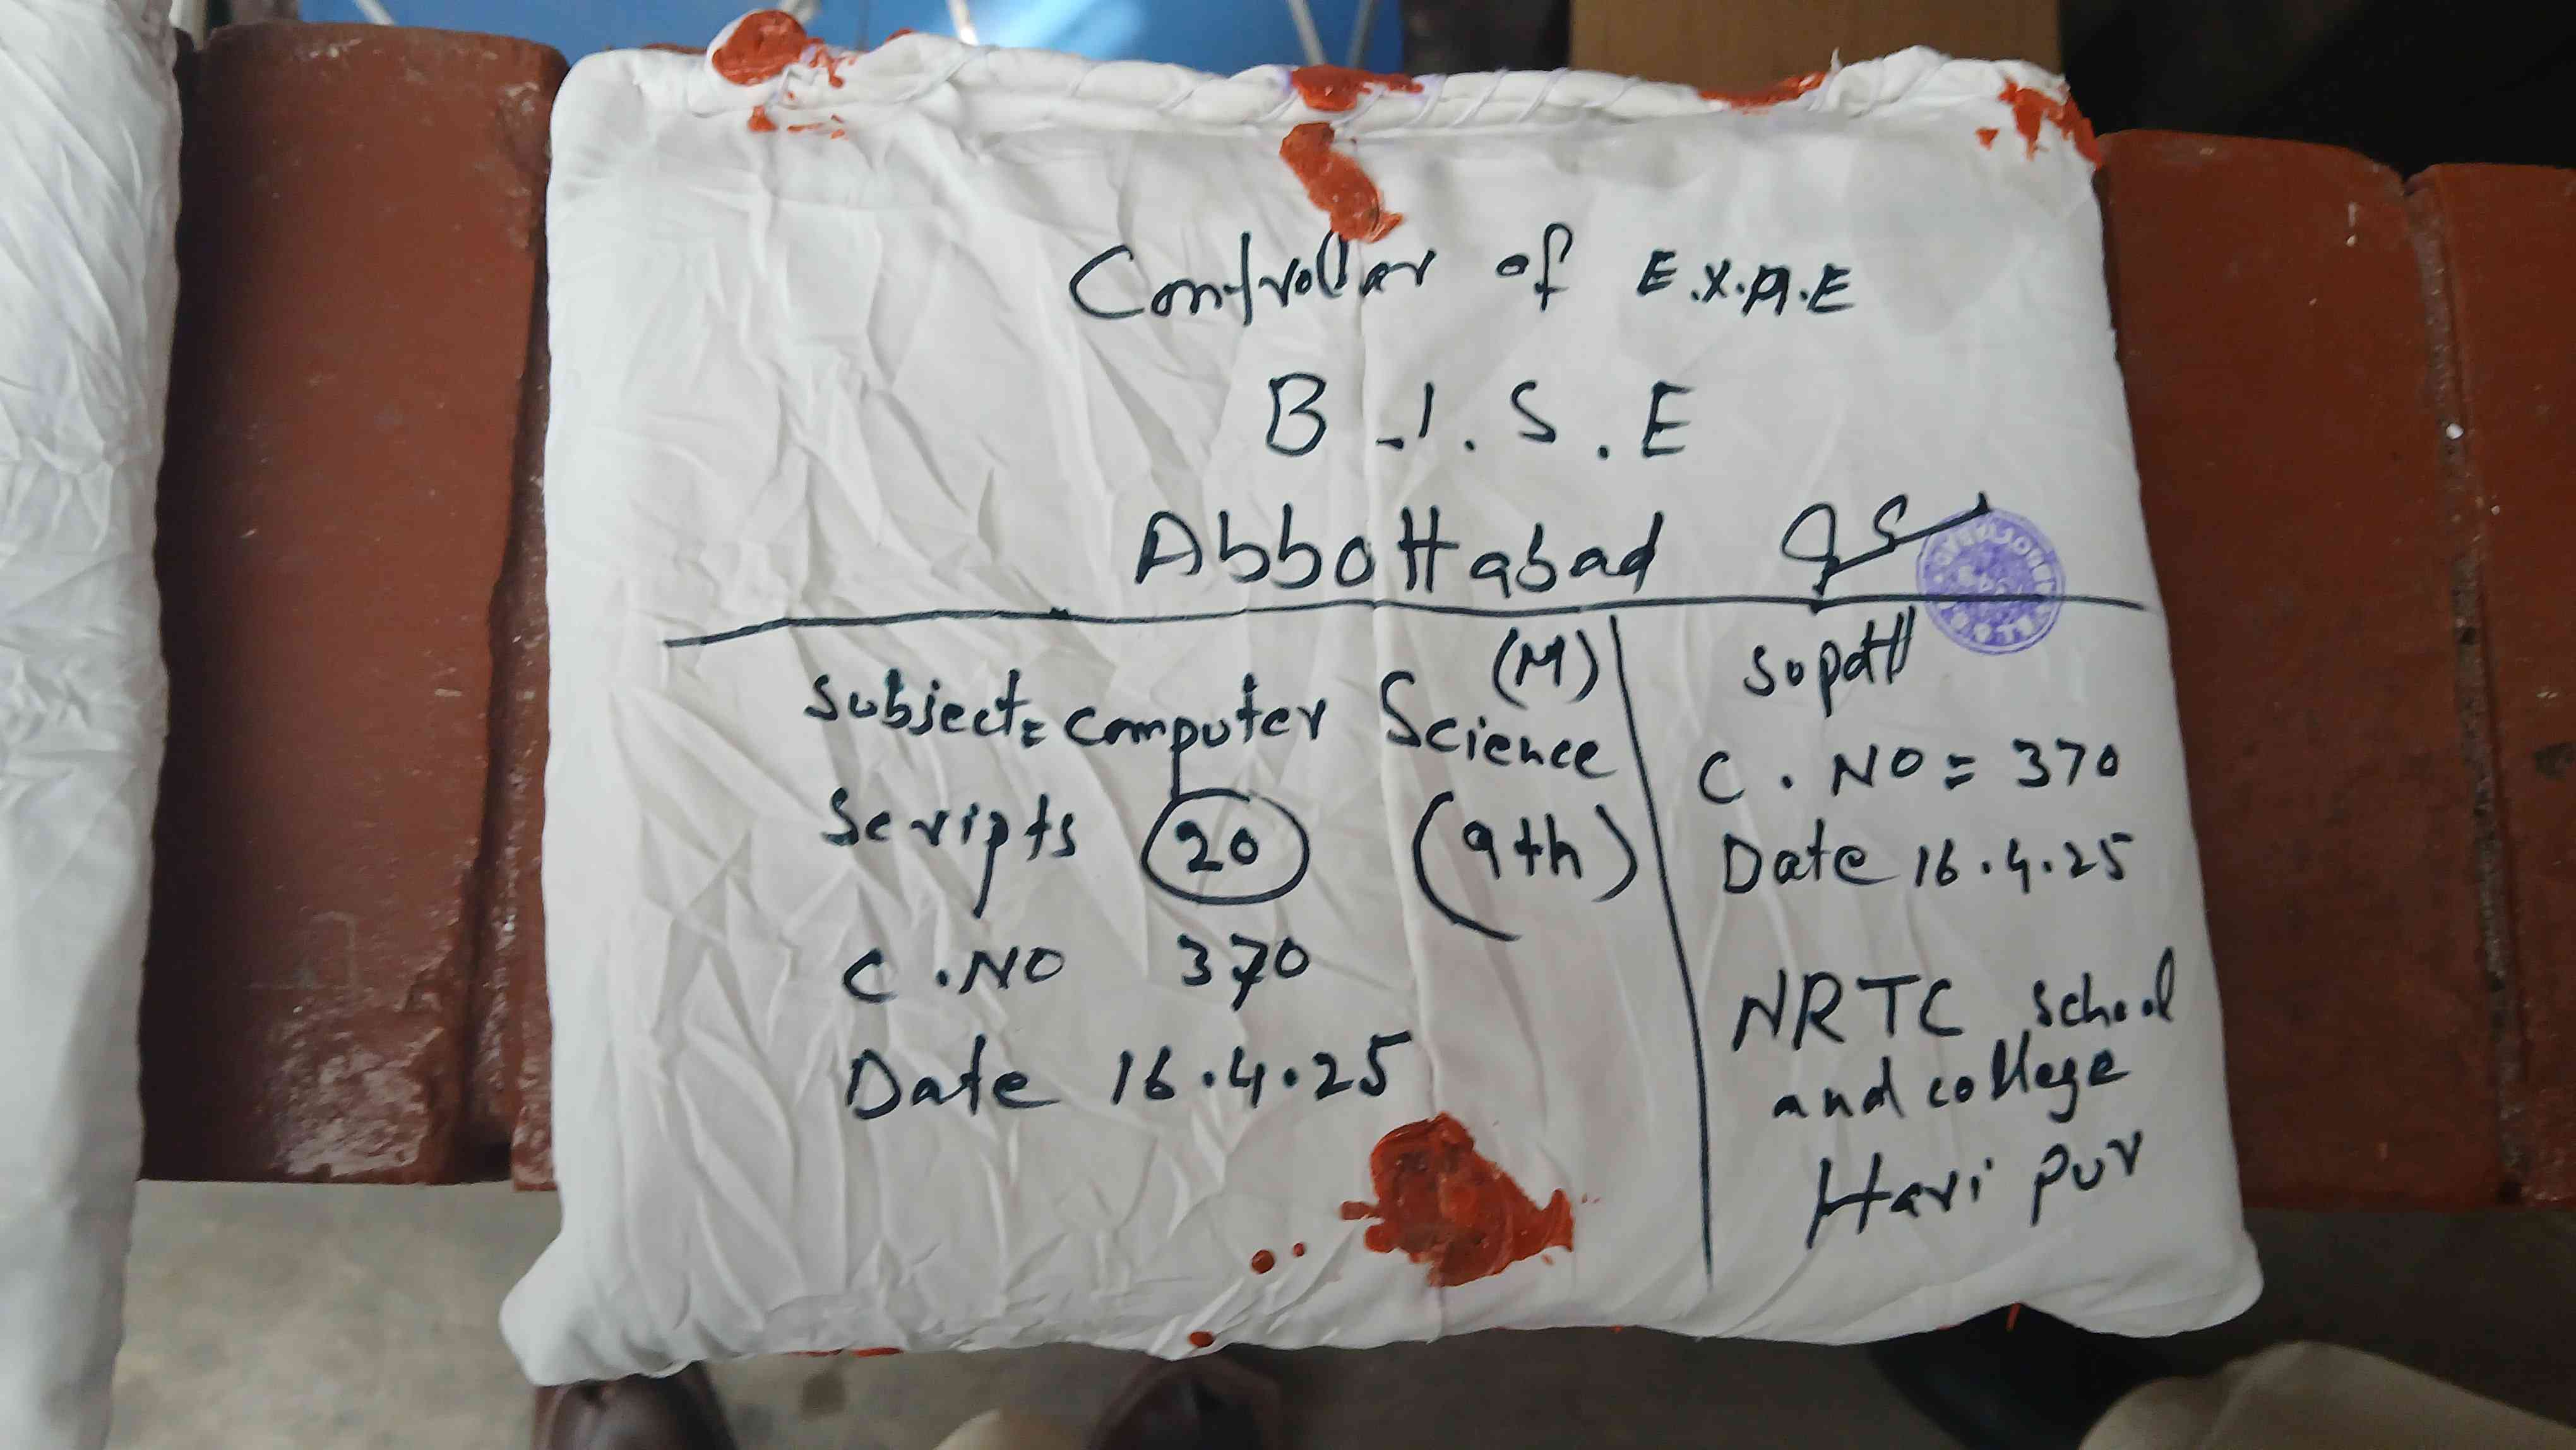 Controller of E.X.A.E
B.I.S.E
Abbottabad
Subject= Computer Science (M)
Scripts 20 (9th)
C.NO 370
Date 16.4.25
Supdtt
C.NO = 370
Date 16.4.25
NRTC School
and college
Hari pur